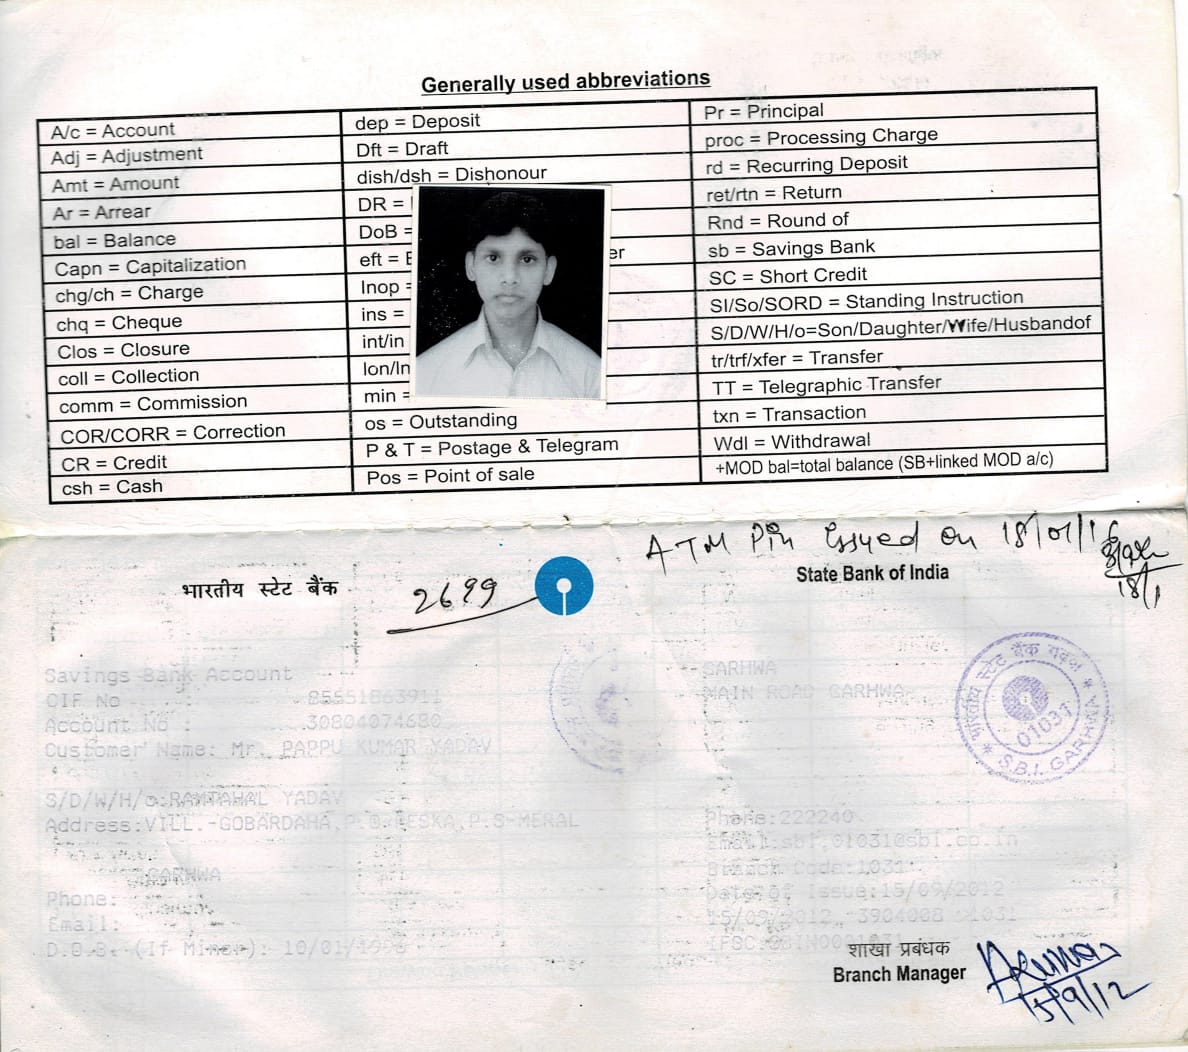 Generally used abbreviations
A/c = Account
Adj = Adjustment
Amt = Amount
Ar = Arrear
bal = Balance
Capn = Capitalization
chg/ch = Charge
chq = Cheque
Clos = Closure
coll = Collection
comm = Commission
COR/CORR = Correction
CR = Credit
csh = Cash
dep = Deposit
Dft = Draft
dish/dsh = Dishonour
DR =
DoB =
eft = E er
Inop =
ins =
int/in
lon/ln
min =
os = Outstanding
P & T = Postage & Telegram
Pos = Point of sale
Pr = Principal
proc = Processing Charge
rd = Recurring Deposit
ret/rtn = Return
Rnd = Round of
sb = Savings Bank
SC = Short Credit
SI/So/SORD = Standing Instruction
S/D/W/H/o=Son/Daughter/Wife/Husbandof
tr/trf/xfer = Transfer
TT = Telegraphic Transfer
txn = Transaction
Wdl = Withdrawal
+MOD bal=total balance (SB+linked MOD a/c)
ATM Pin Issyed on 18/01/16
18/1
भारतीय स्टेट बैंक
2699
State Bank of India
Savings Bank Account
CIF No : 85551863911
Account No : 30804074680
Customer Name: Mr. PAPPU KUMAR YADAV
S/D/W/H/o:RAMTAHAL YADAV
Address:VILL.-GOBARDAHA,P.O. P.S-MERAL
GARHWA
Phone:
Email:
D.O.B. (If Minor): 10/01/
GARHWA
MAIN ROAD GARHWA
भारतीय स्टेट बैंक गढ़वा
01031
S.B.I. GARHWA
Phone:222240
Email:sbi.01031@sbi.co.in
Branch Code:1031
Date of Issue:15/09/2012
15/09/2012, 3904008 1031
IFSC:SBIN0001031
शाखा प्रबंधक
Branch Manager
15/9/12